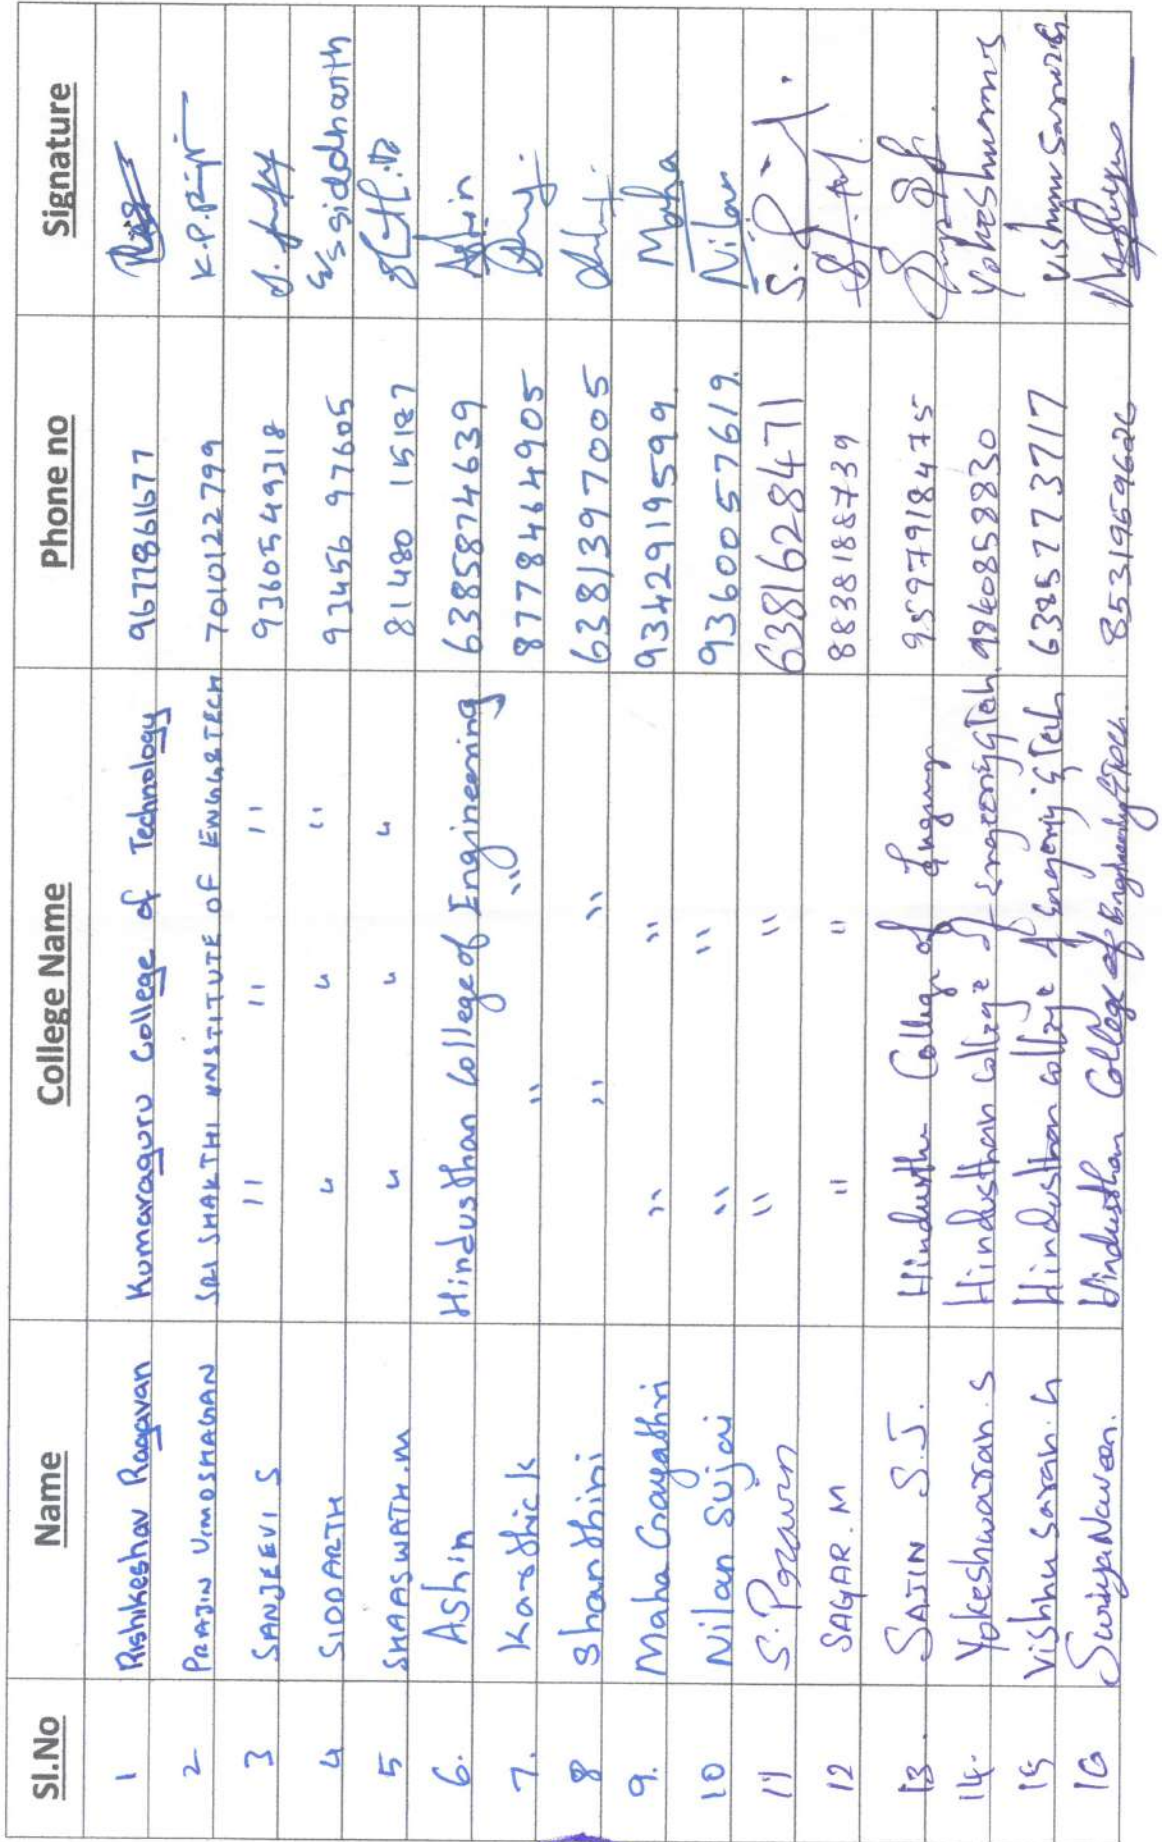 Sl.No Name College Name Phone no Signature
1 Rishikeshav Ragavan Kumaraguru College of Technology 9677861677
2 PRAJIN VIMOSHAGAN SRI SHAKTHI INSTITUTE OF ENGG&TECH 7010122799 K.P.
3 SANJEEVI S " " " 9360549318
4 SIDDARTH " " " 93456 97605 siddharth
5 SHAASWATH.M " " " 81480 15127
6. Ashin Hindusthan College of Engineering 6385874639 Ashin
7. Karthick " " " 8778464905
8 Shanthini " " 6381397005
9. Maha Gayathri " " 9342919599 Maha
10 Nilan Sujai " " 9360057619. Nilan
11 S. Pravin " " 6381628471
12 SAGAR.M " " 8838188739
13. SAJIN S.J. Hindusthan College of 9597918475
14. Yokeshwaran.S Hindusthan College of Engineering & Tech. 9840858830
15 Vishnu Saran.G Hindusthan College of Engineering & Tech 6385273717
16 Suriya Naveen. Hindusthan College of Engineering & Tech. 8531959626